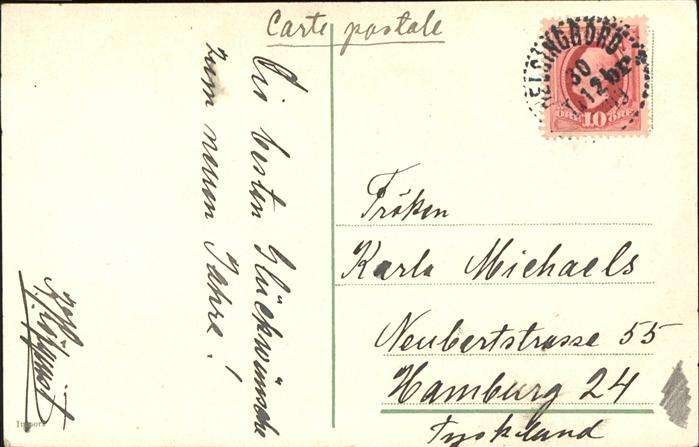 Carte postale
HELSINGBORG
30
12
10
Die besten Glückwünsche
zum neuen Jahre!
Fröken
Karla Michaels
Neubertstrasse 55
Hamburg 24
Tyskland